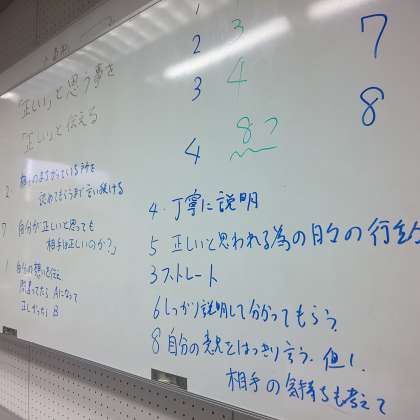 「正しい」と思う事を
「正しい」と伝える
2 相手のまちがっている所を
認めてもらうまで言い続ける
7 自分が正しいと思っても
相手は正しいのか?」
1 自分の想いを伝え
間違ってたら Aになって
正しかったら B
1
2 3
3 4
4 8つ
7
8
4. 丁寧に説明
5 正しいと思われる為の日々の行動
3 ストレート
6 しっかり説明して分かってもらう
8 自分の意見をはっきり言う. 但し.
相手の気持ちも考えて